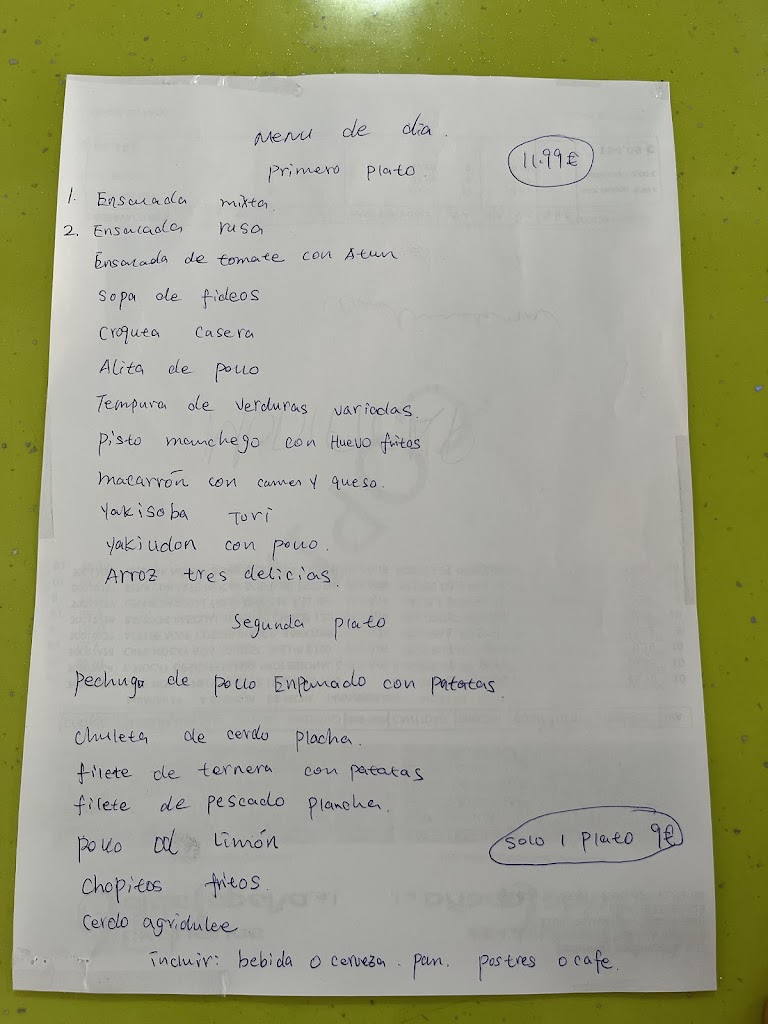 Menu de dia.
11.99€
primero plato.
1. Ensalada mixta.
2. Ensalada rusa
Ensalada de tomate con Atun
Sopa de fideos
Croqueta casera
Alita de pollo
Tempura de verduras variadas.
pisto manchego con Huevo fritos
macarrón con carne y queso.
Yakisoba Tori
yakiudon con pollo.
Arroz tres delicias.
Segunda plato
pechuga de pollo Enpanado con patatas.
chuleta de cerdo placha.
filete de ternera con patatas
filete de pescado plancha.
pollo al Limón
solo 1 plato 9€
chopitos fritos.
cerdo agridulce
incluir: bebida o cerveza. pan. postres o cafe.